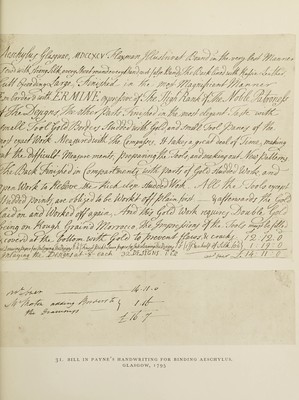 Aeschylus Glasguae, MDCCXCV Flaxman Illustrat. Bound in the very best Manner
Sew'd with Strong Silk, every Sheet round every Band, not false Bands, The Back lined with Russia Leather
Finished in the most Magnificent Manner
Em-border'd with ERMINE expressive of The High Rank of The Noble Patroness
of The Designs, The other Parts Finished in the most elegant Taste with
Small Tool Gold Borders Studded with Gold, and small Tool Panes of the
most exact Work. Measured with the Compasses. It takes a great deal of Time, making
out the difficult Measurements, preparing the Tools, and making out New Patterns
The Back Finished in Compartments with Parts of Gold Studded Work and
open Work to Relieve the Rich close Studded Work. All the Tools except
Studded points, are obliged to be Workt off plain first & afterwards the Gold
laid on and Worked off again. And this Gold Work requires Double Gold
being on Rough Grain'd Morocco, the Impressions of the Tools must be fitted &
covered at the bottom with Gold to prevent flaws & cracks. 12 12 0
1 19 0
£ 14 11 0
14 11 0
1 16
the Drawings
£ 16 7
31. BILL IN PAYNE'S HANDWRITING FOR BINDING AESCHYLUS,
GLASGOW, 1795